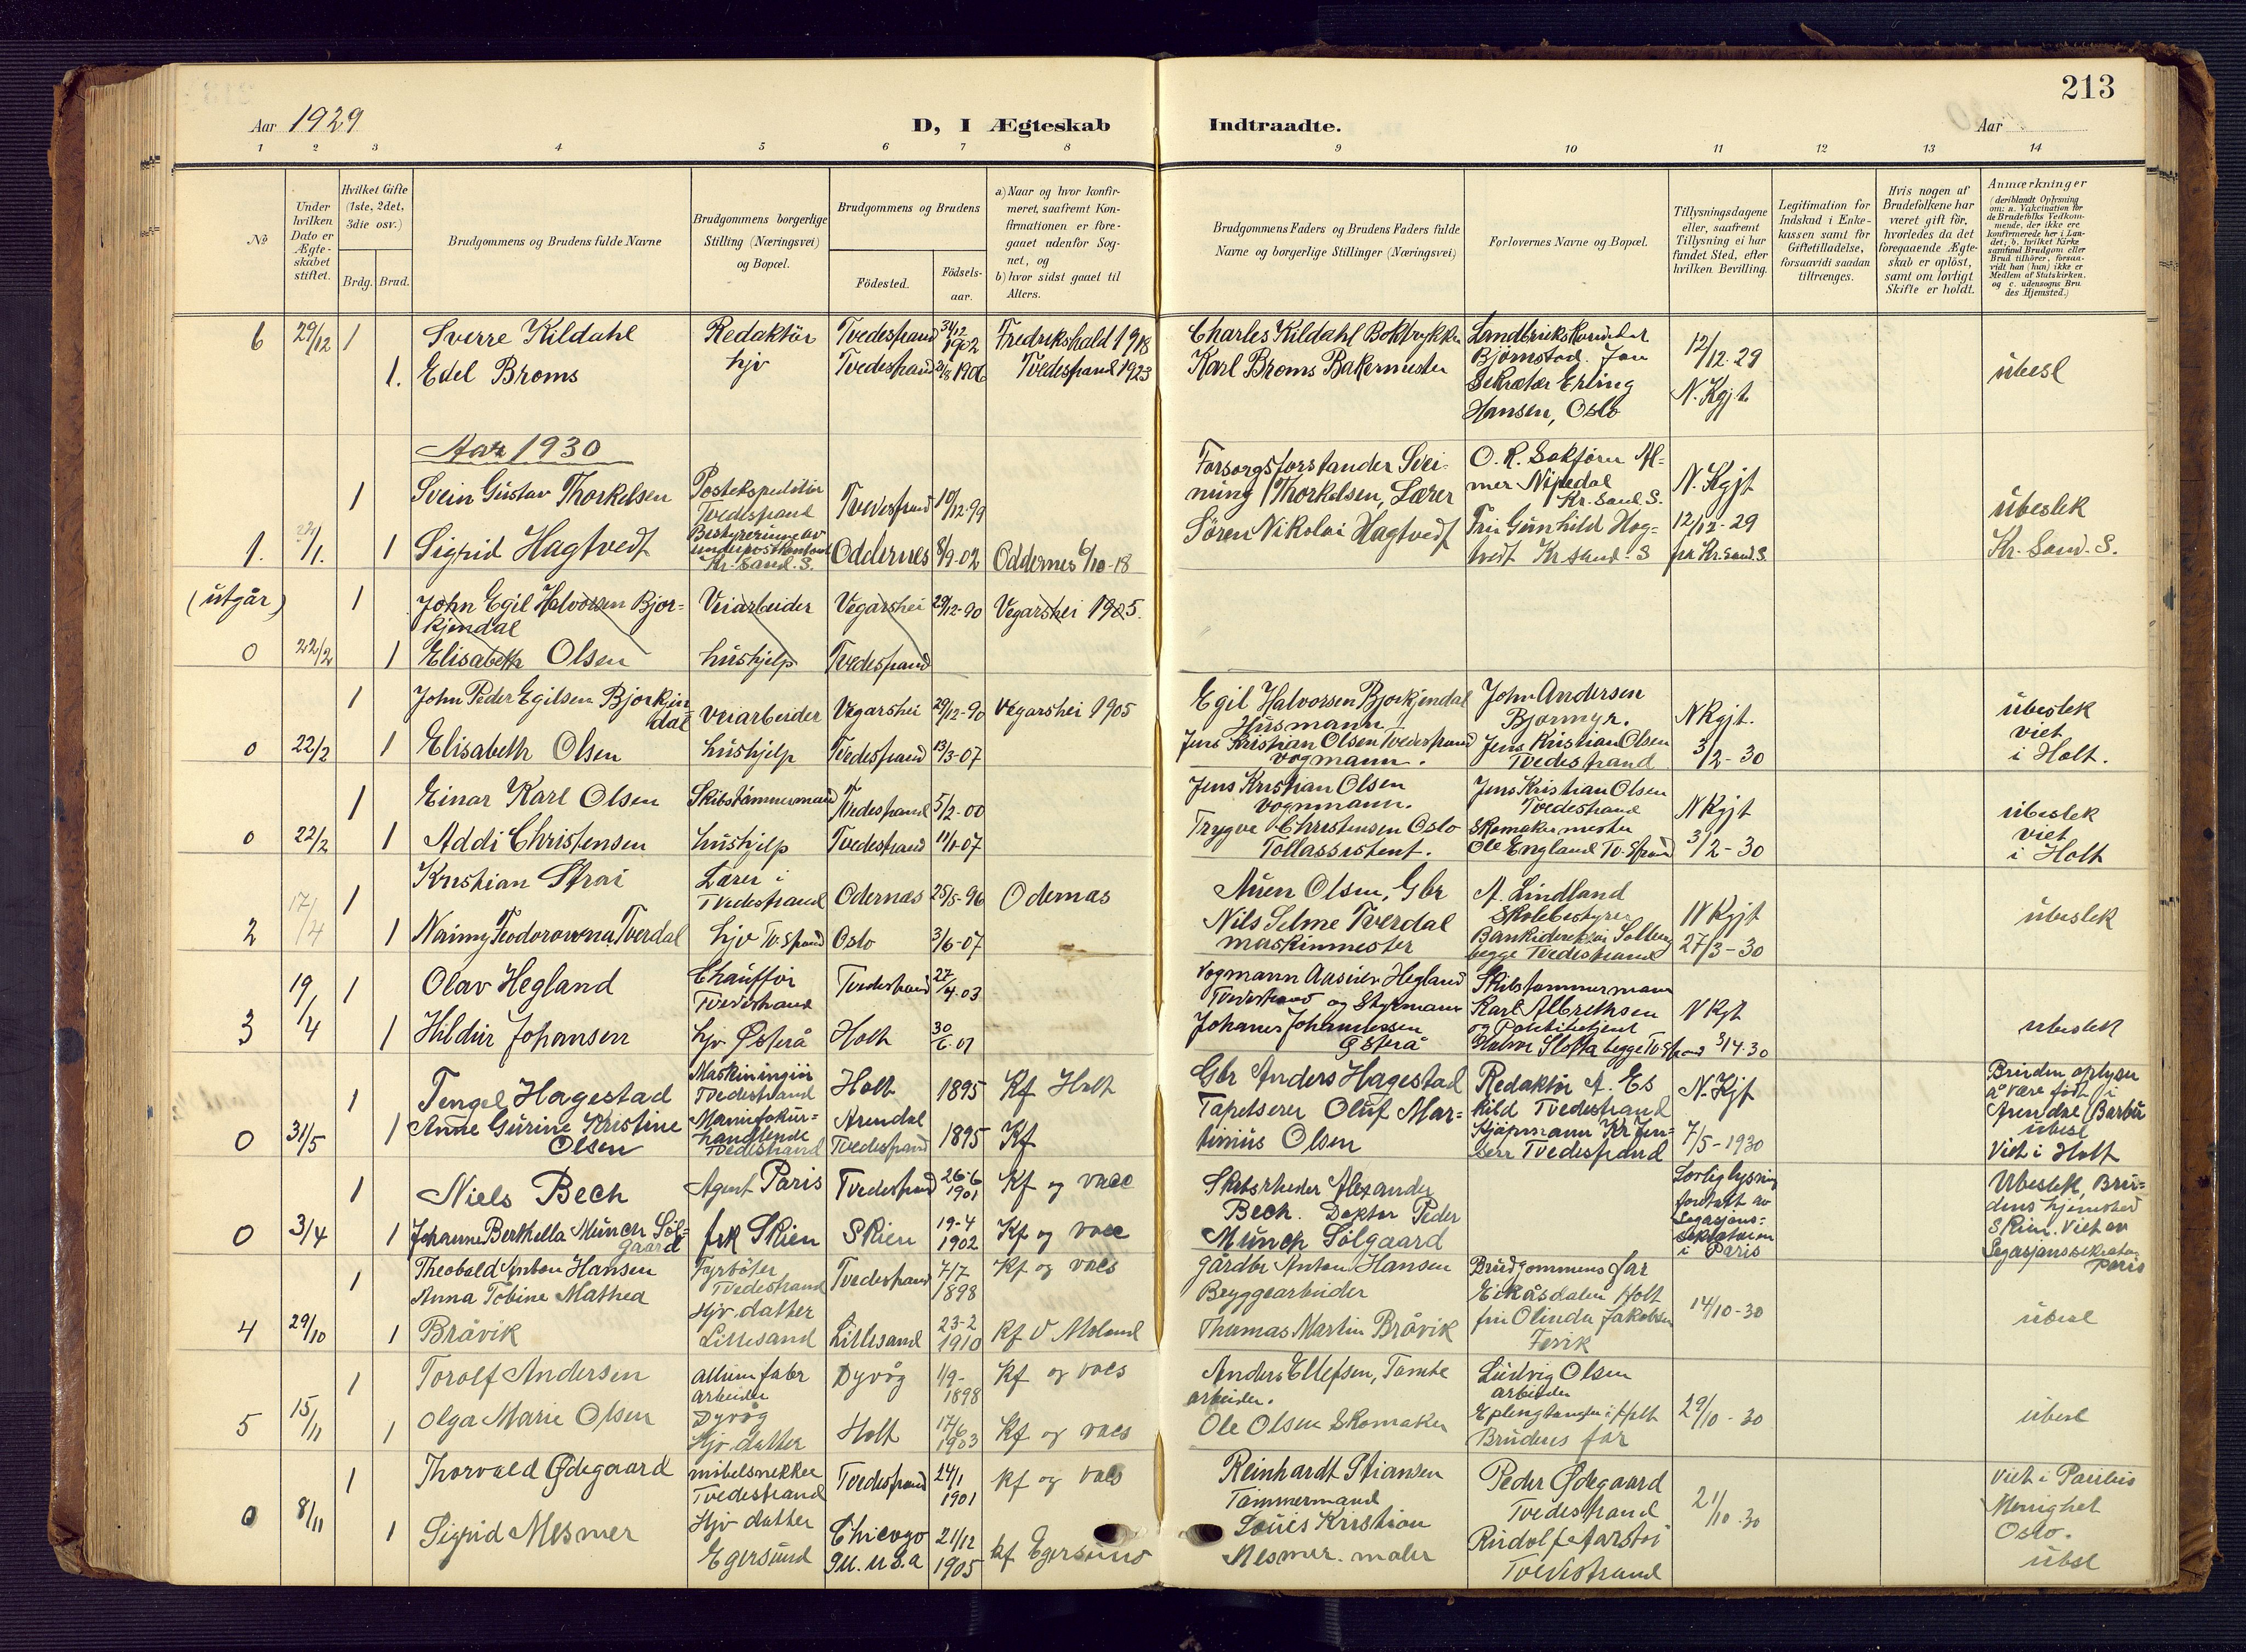 213
Aar 1929
D, I Ægteskab
Indtraadte.
Aar
1 2 3 4 5 6 7 8 9 10 11 12 13 14
No
Under hvilken Dato er Ægte-skabet stiftet.
Hvilket Gifte (1ste, 2det, 3die osv.)
Brdg. Brud.
Brudgommens og Brudens fulde Navne
Brudgommens borgerlige Stilling (Næringsvei) og Bopæl.
Brudgommens og Brudens
Fødested.
Fødsels-aar.
a) Naar og hvor konfir-meret, saafremt Kon-firmationen er fore-gaaet udenfor Sog-net, og
b) hvor sidst gaaet til Alters.
Brudgommens Faders og Brudens Faders fulde Navne og borgerlige Stillinger (Næringsvei)
Forlovernes Navne og Bopæl.
Tillysningsdagene eller, saafremt Tillysning ei har fundet Sted, efter hvilken Bevilling.
Legitimation for Indskud i Enke-kassen samt for Giftetilladelse, forsaavidt saadan tiltrænges.
Hvis nogen af Brudefolkene har været gift før, hvorledes da det foregaaende Ægte-skab er opløst, samt om lovligt Skifte er holdt.
Anmærkninger (deriblandt Oplysning om: a. Vakcination for de Brudefolks Vedkom-mende, der ikke ere konfirmerede her i Lan-det; b. hvilket Kirke samfund Brudgom eller Brud tilhører, forsaa-vidt han (hun) ikke er Medlem af Statskirken, og c. udensogns Bru des Hjemsted.)
6 29/12 1 Sverre Kildahl Redaktör Tvedestrand 31/12 1902 Fredrikshald 1918 Charles Kildahl Boktrykker
1. Edel Broms hjv Tvedestrand 1906 Tvedestrand 1923 Karl Broms Bakermester
Björnstad.
Sekretær Erling Hansen, Oslo
12/12-29 N. Kgjt. übesl
Aar 1930
1 Svein Gustav Thorkelsen Postekspeditör Tvedestrand Tvedestrand 10/12-99
Forsorgsforstander Svei-ning Thorkelsen, Lærer
O. R. Sakförer Al-mer Nipedal Kr. Sand. S.
N. Kgjt
1. 1 Sigrid Hagtvedt Bestyrerinne av underpostkontoret Kr. Sand. S. Oddernes 8/9-02 Oddernes 6/10-18
Sören Nikolai Hagtvedt
Fru Gunhild Hag-tvedt Kr sand. S
12/12-29 fra Kr. Sand. S.
übeslek Kr. Sand. S.
(utgår) 1 John Egil Halvorsen Bjor-kjendal Veiarbeider Vegarshei 29/12-90 Vegarshei 1905.
0 22/2 1 Elisabeth Olsen hushjelp Tvedestrand
1 John Peder Egilsen Bjorkjen-dal veiarbeider Vegarshei 29/12-90 Vegarshei 1905
Egil Halvorssen Bjorkjendal Husmann
John Andersen Bjormyr.
N Kgjt.
0 22/2 1 Elisabeth Olsen hushjelp Tvedestrand 13/3-07
Jens Kristian Olsen Tvedestrand vogmann.
Jens Kristian Olsen Tvedestrand
3/2-30
übeslek viet i Holt.
1 Einar Karl Olsen Skibstömmermand Tvedestrand 5/2-00
Jens Kristian Olsen vognmann.
Jens Kristian Olsen Tvedestrand
N Kgjt
0 22/2 1 Addi Christensen hushjelp Tvedestrand 11/1-07
Trygve Christensen Oslo Tollassistent.
Skomakermester Ole England Tv. Strand
3/2-30
übeslek viet i Holt
17/4 1 Kristian Strai Lærer i Tvedestrand Odernæs 25/5-96 Odernas
Nils Selme Tverdal maskinmester
A. Lindland Skolebestyrer
N Kgjt
2 1 Naimy Feodorowna Tverdal hjv Tv. Strand Oslo 3/6-07
begge Tvedestrand
27/3-30
übeslek
19/4 1 Olav Hegland Chauffør Tvedestrand Tvedestrand 27/4-03
Vogmann Hegland Tvedestrand og Styrmann
Skibstømmermann Karl Albrethsen
N Kgt
3 1 Hildur Johansen hjv Østerå Holt 30/6-07
Johannes Johannessen Østerå
begge Tv. Strand
3/4-30
übeslek
1 Tengel Hagestad Maskiningiör Tvedestrand Holt 1895 Kf Holt
Gbr Anders Hagestad
Redaktör A. Es kild Tvedestrand
N. Kjt
0 31/5 1 Anne Gurine Kristine Olsen Manufaktur-handlende Tvedestrand Arendal Tvedestrand 1895 Kf
Tapetserer Oluf Mar-tinius Olsen
Kjöpmann Kr Jen-sen Tvedestrand
7/5-1930
Bruden oplyser å være født i Arendal (Barbu übesl Viet i Holt
1 Niels Bech Agent Paris Tvedestrand 26-6 1901 Kf og vacc
Skibsrheder Alexander Bech. Doktor Peder Münch Sölgaard
Lovlig lysning foretatt av Legasjons-sekretæren i Paris
0 3/4 1 Johanne Berthella Münch Søl-gaard frk Skien Skien 19-4 1902 Kf og vacc
Ubeslek, Bru-dens hjemsted Skien. Viet av Legasjonssekretær Paris
1 Theobald Anton Hansen Fyrböter Tvedestrand Tvedestrand 7/7 1898 Kf og vacs
Gårdbr Anton Hansen Bryggearbeider
Brudgommens far Eikåsdalen Holt
4 29/10 1 Anna Tobine Mathea Bråvik Hjv. datter Lillesand Lillesand 23-2 1910 Kf V Moland
Thomas Martin Bråvik
fru Olinda Jakobsen
14/10-30
übesl
1 Torolf Andersen Dyvåg arbeider Dyvåg 1/9-1898 Kf og vacs
Anders Ellefsen, Tomte arbeider.
Ludvig Olsen arbeider
5 15/11 1 Olga Marie Olsen Hjv datter Holt 17/6 1903 Kf og vacs
Ole Olsen Skomaker
Brudens far
29/10-30
übesl
1 Thorvald Ødegaard möbelsnekker Tvedestrand Tvedestrand 24/1 1901 kf og vacs
Reinhardt Stiansen Tömmermand
Peder Ødegaard Tvedestrand
21/10-30
0 8/11 1 Sigrid Mesmer Hjv datter Egersund Chicago Ill. U S. A 21/12 1905 kf Egersund
Louis Kristian Mesmer. maler
Rudolf Aarstöl Tvedestrand
Viet i Paulus Menighet Oslo. übsl